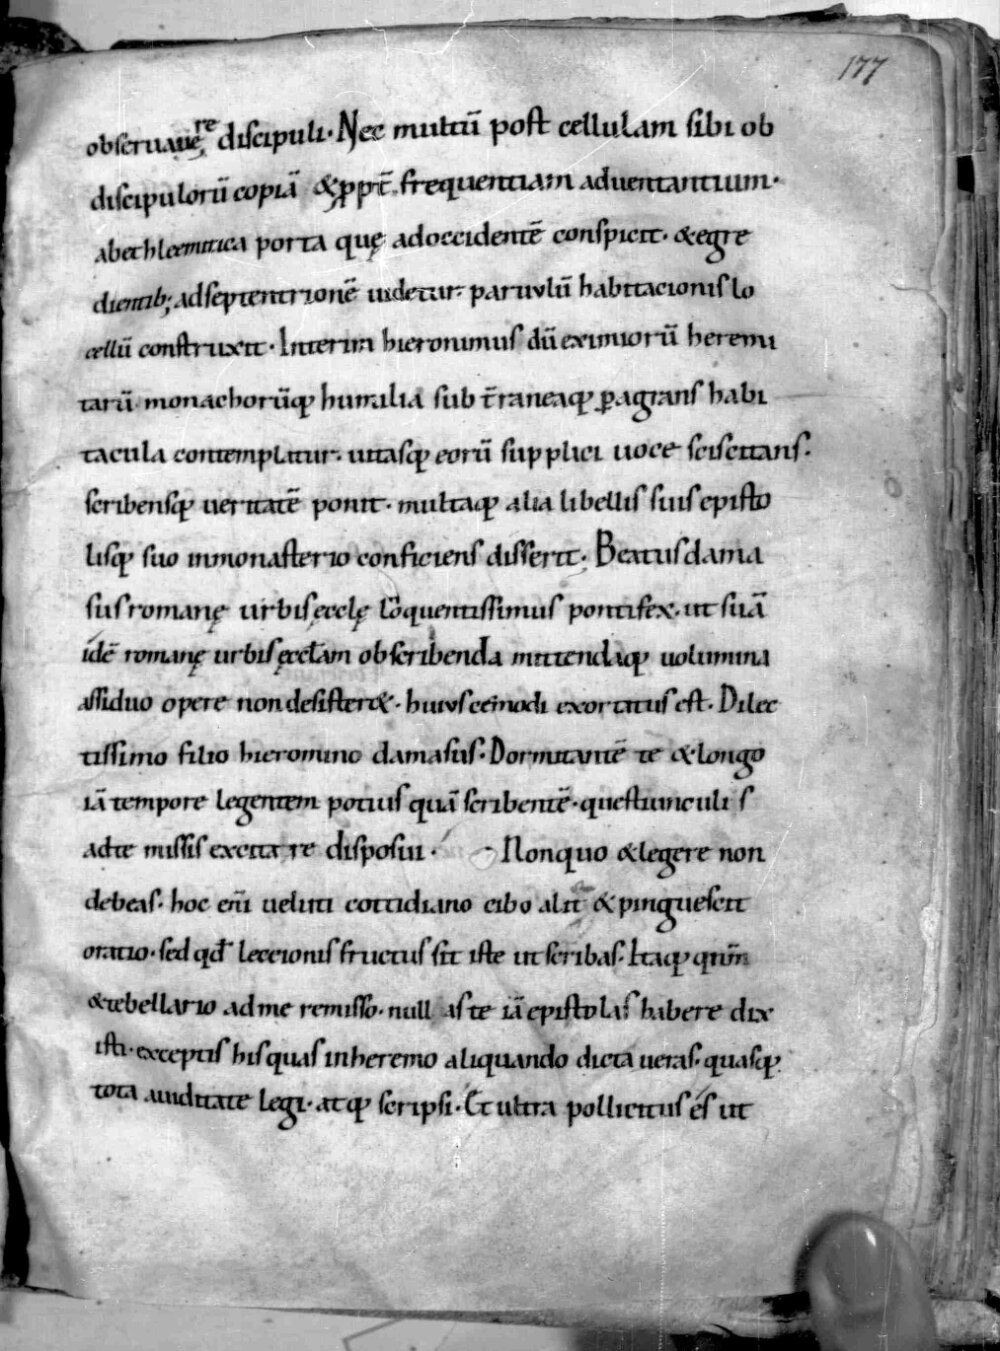 177
obseruauę̄re discipuli· Nec multū post cellulam sibi ob
discipulorū copiā &ꝓpt̄ frequentiam aduentantium·
abethleemitica porta quę adoccidentē conspicit· &egre
dientib; adseptentrionē uidetur· paruulū habitacionis lo
cellū construxit· Interim hieronimus dū eximiorū heremi
tarū monachorūqꝫ humilia sub t̄raneaqꝫ ꝑagrans habi
tacula contemplitur· uitasqꝫ eorū supplici uoce sciscitans·
scribensqꝫ ueritatē ponit· multaqꝫ alia libellis suis episto
lisqꝫ suo inmonasterio conficiens disserit· Beatus dama
sus romanę urbis ęcclę loquentissimus pontifex· ut suā
idē romanę urbis ęccl̄am obscribenda mittendaqꝫ uolumina
assiduo opere non desister&· huiuscemodi exortatus est· Dilec
tissimo filio hieronimo damasus· Dormitantē te & longo
iā tempore legentem potius quā scribentē· questiunculis
adte missis excitare disposui· Non quo & legere non
debeas· hoc eni̅ ueluti cottidiano cibo alit̄ & pinguescit
oratio· sed qd̄ leccionis fructus sit iste ut scribas· Itaqꝫ qnm̄
&tebellario ad me remisso· nullas te iā epistolas habere dix
isti· exceptis his quas inheremo aliquando dictaueras· quasqꝫ
tota auiditate legi· atqꝫ scripsi· Et ultra pollicitus és ut